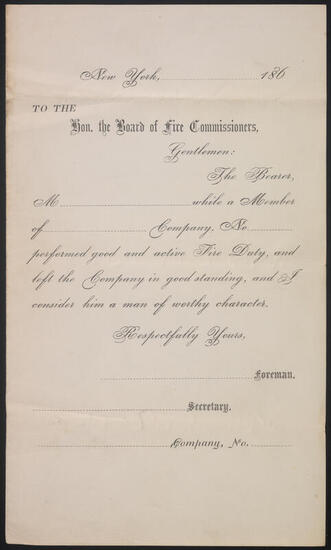 New York, 186
TO THE
Hon. the Board of Fire Commissioners,
Gentlemen:
The Bearer,
M while a Member
of Company, No.
performed good and active Fire Duty, and
left the Company in good standing, and I
consider him a man of worthy character.
Respectfully Yours,
Foreman.
Secretary.
Company, No.